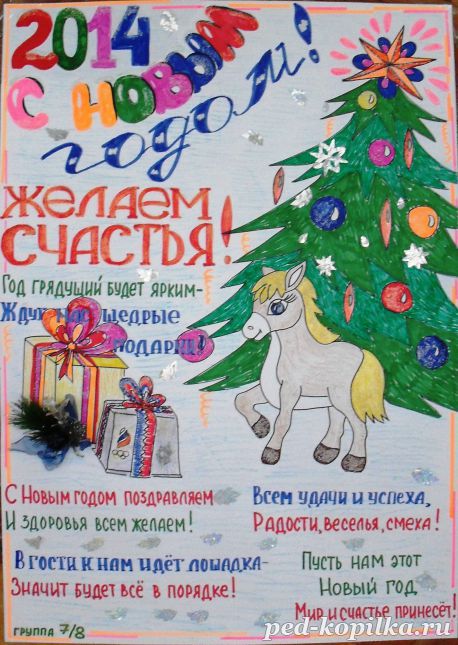 2014
С НОВЫМ
ГОДОМ!
ЖЕЛАЕМ
СЧАСТЬЯ!
ГОД ГРЯДУЩИЙ БУДЕТ ЯРКИМ-
ЖДУТ НАС ЩЕДРЫЕ
ПОДАРКИ!
С НОВЫМ ГОДОМ ПОЗДРАВЛЯЕМ
И ЗДОРОВЬЯ ВСЕМ ЖЕЛАЕМ!
В ГОСТИ К НАМ ИДЁТ ЛОШАДКА-
ЗНАЧИТ БУДЕТ ВСЁ В ПОРЯДКЕ!
ВСЕМ УДАЧИ И УСПЕХА,
РАДОСТИ, ВЕСЕЛЬЯ, СМЕХА!
ПУСТЬ НАМ ЭТОТ
НОВЫЙ ГОД
МИР И СЧАСТЬЕ ПРИНЕСЁТ!
ГРУППА 7/8
ped-kopilka.ru